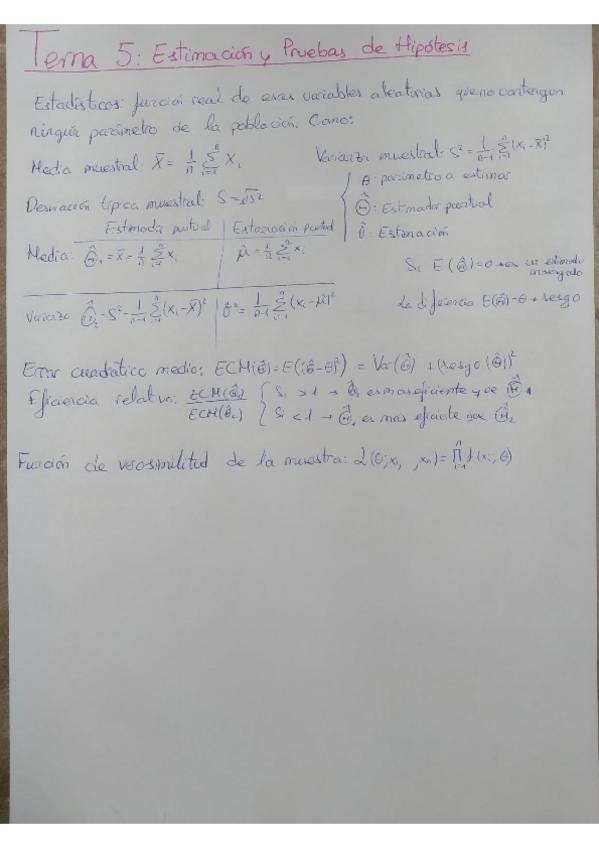 Tema 5: Estimación y Pruebas de Hipótesis
Estadísticos: función real de esas variables aleatorias que no contengan
ningún parámetro de la población. Como:
Media muestral: X̄ = 1/n Σ Xi
Varianza muestral: S² = 1/(n-1) Σ (Xi - X̄)²
Desviación típica muestral: S = √S²
θ: parámetro a estimar
Θ̂: Estimador puntual
θ̂: Estimación
Estimada puntual | Estimación puntual
Media: Θ̂₁ = X̄ = 1/n Σ Xi | μ̂ = 1/n Σ xi
Si E(Θ̂) = θ → es un estimado
insesgado
Varianza Θ̂₂ = S² = 1/(n-1) Σ (Xi - X̄)² | σ̂² = 1/(n-1) Σ (xi - μ̂)²
La diferencia E(Θ̂) - θ → sesgo
Error cuadrático medio: ECM(Θ̂) = E((Θ̂ - θ)²) = Var(Θ̂) + (sesgo(Θ̂))²
Eficiencia relativa: ECM(Θ̂₁)/ECM(Θ̂₂)
Si > 1 → Θ̂₂ es mas eficiente que Θ̂₁
Si < 1 → Θ̂₁ es mas eficiente que Θ̂₂
Función de verosimilitud de la muestra: L(θ; x₁, , xn) = Π f(xi; θ)